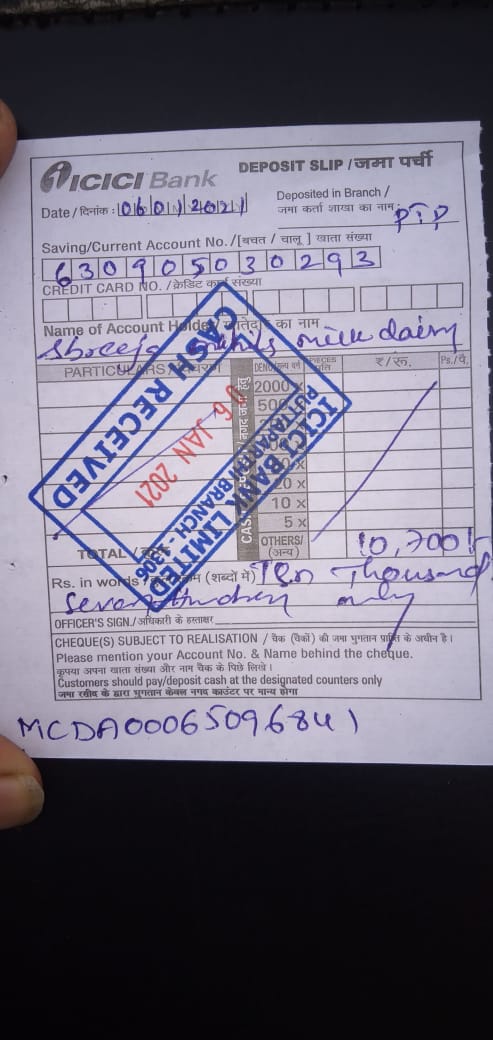 ICICI Bank
DEPOSIT SLIP / जमा पर्ची
Date / दिनांक : 06012021
Deposited in Branch /
जमा कर्ता शाखा का नाम: PTP
Saving/Current Account No. / [बचत / चालू ] खाता संख्या
630905030293
CREDIT CARD NO. / क्रेडिट कार्ड संख्या
Name of Account Holder का नाम
Shreeja milk dairy
PARTICULARS
₹/रू.
Ps./पै.
2000 x
500
20 x
10 x
5 x
OTHERS/
(अन्य)
TOTAL /
10,700/-
CASH RECEIVED
06 JAN 2021
ICICI BANK LIMITED
PUTTAPARTHI BRANCH - 6309
Rs. in words / (शब्दों में) Ten Thousand
Seven Hundred only
OFFICER'S SIGN./अधिकारी के हस्ताक्षर
CHEQUE(S) SUBJECT TO REALISATION / चैक (चैकों) की जमा भुगतान प्राप्ति के अधीन है।
Please mention your Account No. & Name behind the cheque.
कृपया अपना खाता संख्या और नाम चैक के पिछे लिखे।
Customers should pay/deposit cash at the designated counters only
जमा रसीद के द्वारा भुगतान केवल नगद काउंटर पर मान्य होगा
MCDA00065096841